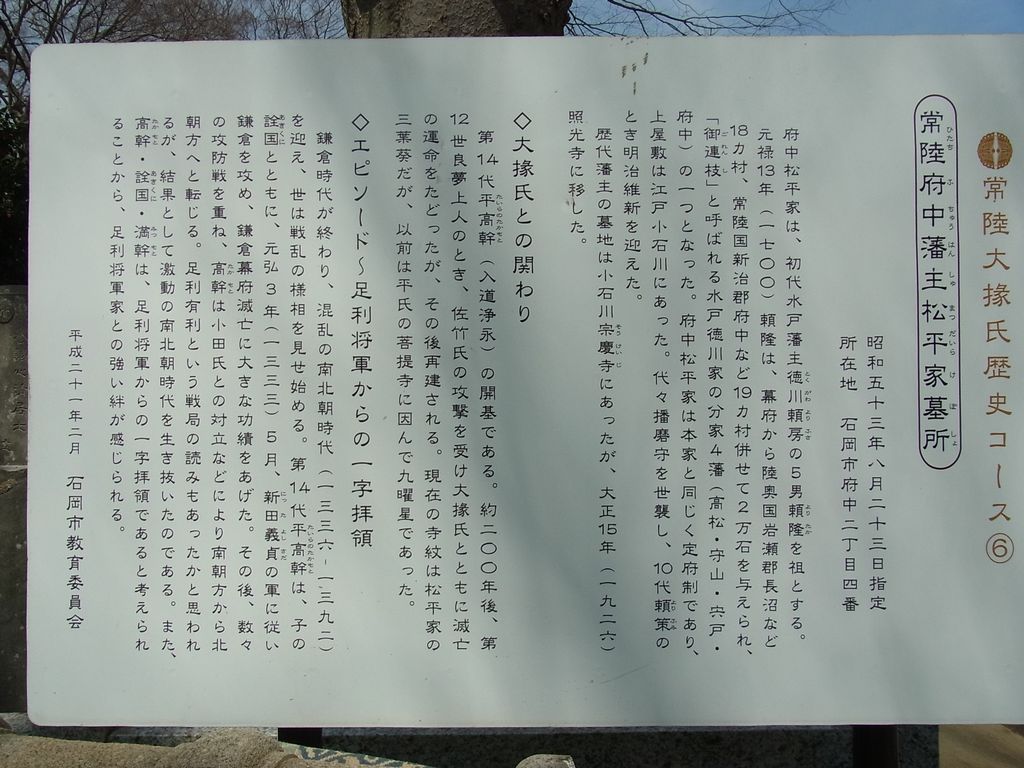 常陸大掾氏歴史コース⑥
常陸府中藩主松平家墓所
昭和五十三年八月二十三日指定
所在地　石岡市府中二丁目四番
府中松平家は、初代水戸藩主徳川頼房の5男頼隆を祖とする。
元禄13年（一七〇〇）頼隆は、幕府から陸奥国岩瀬郡長沼など
18カ村、常陸国新治郡府中など19カ村併せて2万石を与えられ、
「御連枝」と呼ばれる水戸徳川家の分家4藩（高松・守山・宍戸・
府中）の一つとなった。府中松平家は本家と同じく定府制であり、
上屋敷は江戸小石川にあった。代々播磨守を世襲し、10代頼策の
とき明治維新を迎えた。
歴代藩主の墓地は小石川宗慶寺にあったが、大正15年（一九二六）
照光寺に移した。
◇大掾氏との関わり
第14代平高幹（入道浄永）の開基である。約二〇〇年後、第
12世良夢上人のとき、佐竹氏の攻撃を受け大掾氏とともに滅亡
の運命をたどったが、その後再建される。現在の寺紋は松平家の
三葉葵だが、以前は平氏の菩提寺に因んで九曜星であった。
◇エピソード～足利将軍からの一字拝領
鎌倉時代が終わり、混乱の南北朝時代（一三三六-一三九二）
を迎え、世は戦乱の様相を見せ始める。第14代平高幹は、子の
詮国とともに、元弘3年（一三三三）5月、新田義貞の軍に従い
鎌倉を攻め、鎌倉幕府滅亡に大きな功績をあげた。その後、数々
の攻防戦を重ね、高幹は小田氏との対立などにより南朝方から北
朝方へと転じる。足利有利という戦局の読みもあったかと思われ
るが、結果として激動の南北朝時代を生き抜いたのである。また、
高幹・詮国・満幹は、足利将軍からの一字拝領であると考えられ
ることから、足利将軍家との強い絆が感じられる。
平成二十一年二月　石岡市教育委員会